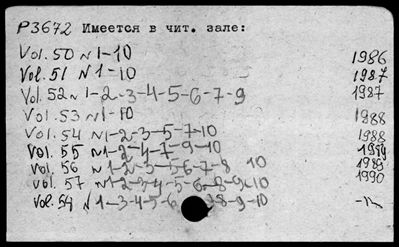 Р3672 Имеется в чит. зале:
Vol. 50 N 1-10 1986
Vol. 51 N 1-10 1987
Vol. 52 N 1-2-3-4-5-6-7-9 1987
Vol. 53 N 1-10 1988
Vol. 54 N 1-2-3-5-7-10 1988
Vol. 55 N 1-2-4-7-9-10 1989
Vol. 56 N 1-2-3-5-6-7-8 10 1989
Vol. 57 N 1-2-3-4-5-6-8-9-10 1990
Vol. 54 N 1-3-4-5-6 8-9-10 -"-